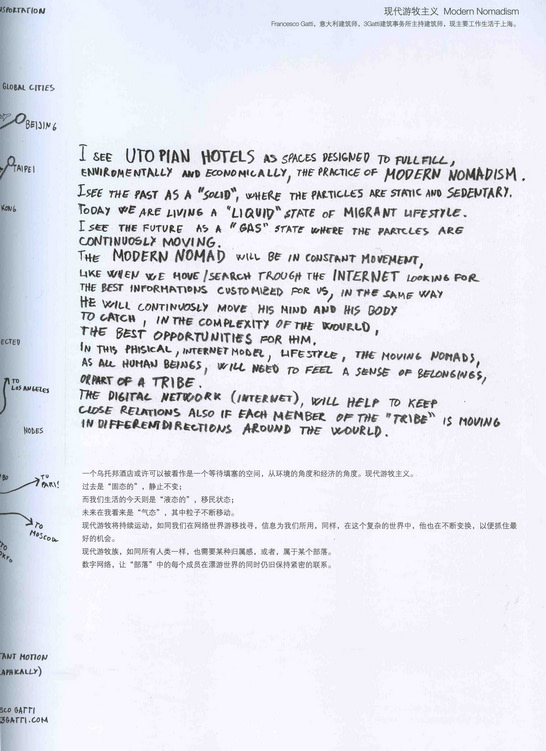 NSPORTATION
GLOBAL CITIES
BEIJING
TAIPEI
KONG
ECTED
TO
LOS ANGELES
NODES
TO
PARI!
TO
MOSCOW
TO
TANT MOTION
APAKALLY)
SCO GATTI
3GATTI.COM
现代游牧主义 Modern Nomadism
Francesco Gatti，意大利建筑师，3Gatti建筑事务所主持建筑师，现主要工作生活于上海。
I SEE UTOPIAN HOTELS AS SPACES DESIGNED TO FULLFILL,
ENVIRDMENTALLY AND ECONOMICALLY, THE PRACTICE OF MODERN NOMADISM.
I SEE THE PAST AS A "SOLID", WHERE THE PARTICLES ARE STATIC AND SEDENTARY.
TODAY WE ARE LIVING A "LIQUID" STATE OF MIGRANT LIFESTYLE.
I SEE THE FUTURE AS A "GAS" STATE WHERE THE PARTCLES ARE
CONTINUOSLY MOVING.
THE MODERN NOMAD WILL BE IN CONSTANT MOVEMENT,
LIKE WHEN WE MOVE/SEARCH TROUGH THE INTERNET LOOKING FOR
THE BEST INFORMATIONS CUSTOMIZED FOR US, IN THE SAME WAY
HE WILL CONTINUOSLY MOVE HIS MIND AND HIS BODY
TO CATCH, IN THE COMPLEXITY OF THE WOURLD,
THE BEST OPPORTUNITIES FOR HIM.
IN THIS PHISICAL, INTERNET MODEL, LIFESTYLE, THE MOVING NOMADS,
AS ALL HUMAN BEINGS, WILL NEED TO FEEL A SENSE OF BELONGINGS,
OR PART OF A TRIBE.
THE DIGITAL NETWORK (INTERNET), WILL HELP TO KEEP
CLOSE RELATIONS ALSO IF EACH MEMBER OF THE "TRIBE" IS MOVING
IN DIFFERENT DIRECTIONS AROUND THE WOURLD.
一个乌托邦酒店或许可以被看作是一个等待填塞的空间，从环境的角度和经济的角度。现代游牧主义。
过去是“固态的”，静止不变；
而我们生活的今天则是“液态的”，移民状态；
未来在我看来是“气态”，其中粒子不断移动。
现代游牧族将持续运动，如同我们在网络世界游移找寻，信息为我们所用，同样，在这个复杂的世界中，他也在不断变换，以便抓住最
好的机会。
现代游牧族，如同所有人类一样，也需要某种归属感，或者，属于某个部落。
数字网络，让“部落”中的每个成员在漂游世界的同时仍旧保持紧密的联系。